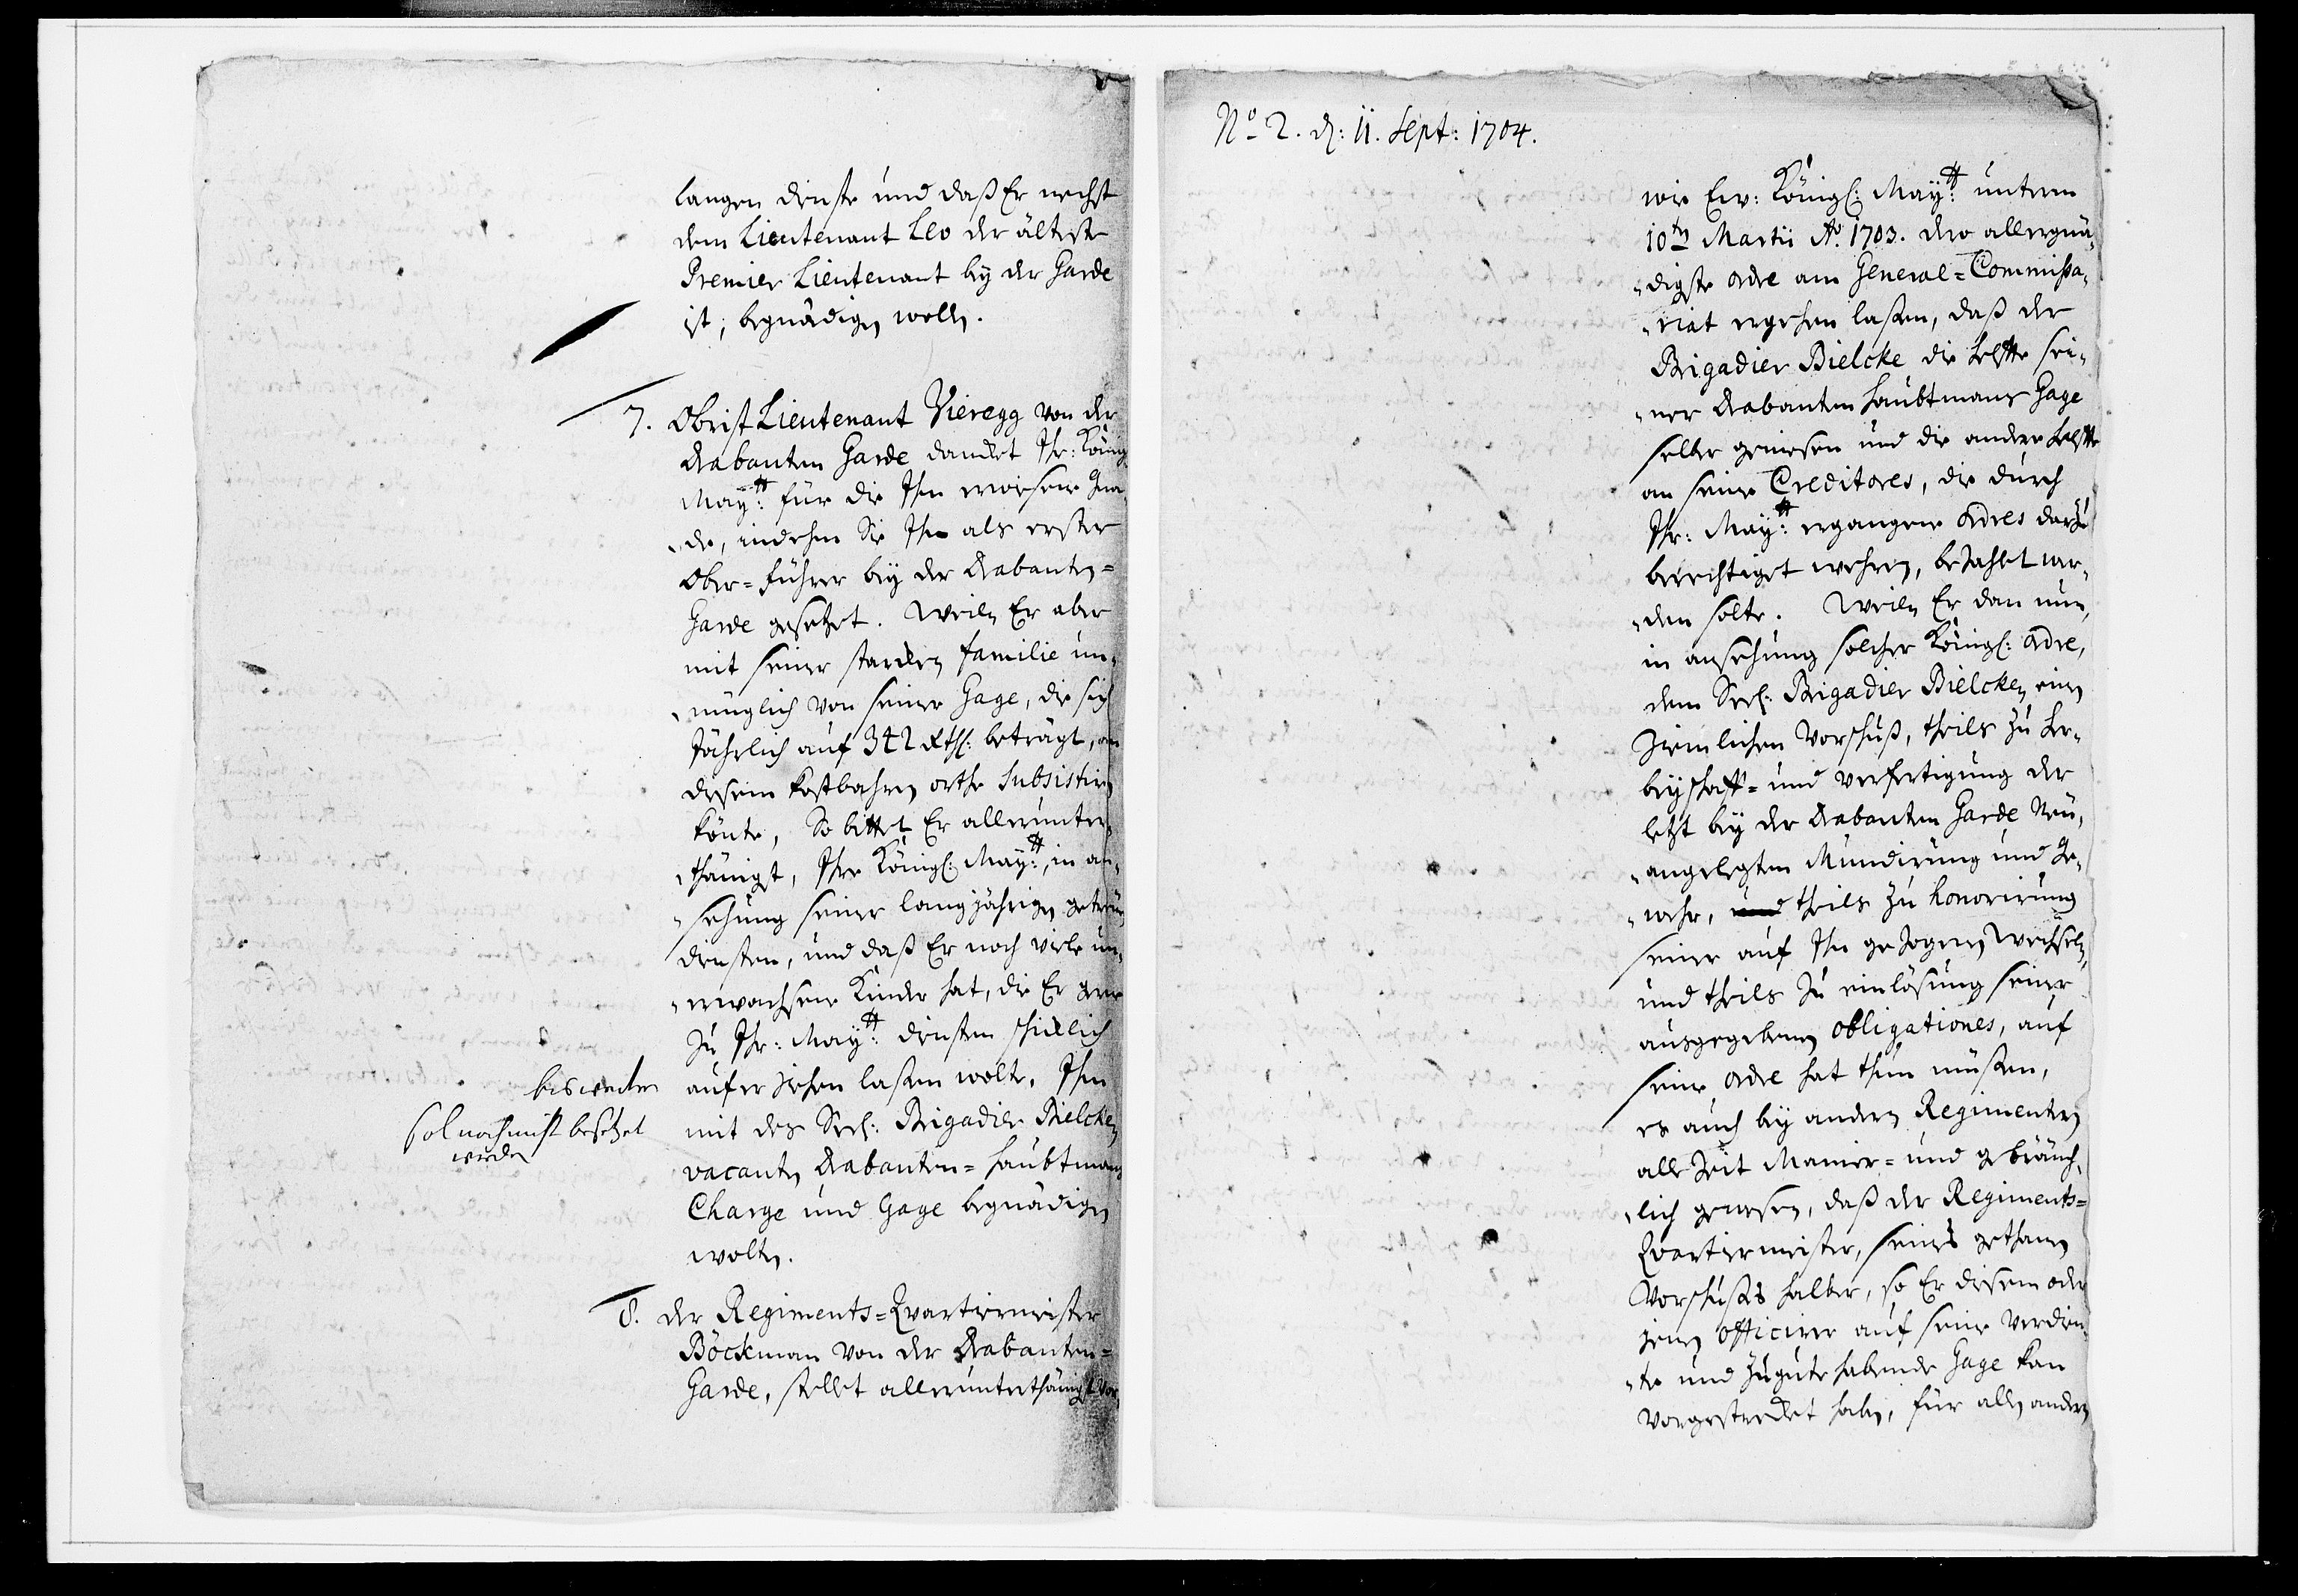 langen dienste und daß Er nechst
dem Lieutenant Leo der älteste
Premier Lieutenant bey der Garde
ist, begnädigen wolln.
7. Obrist Lieutenant Vieregg von der
Drabanten Garde dancket Ihr: König
Maytt: für die Ihm erwiesene Gna¬
„de, indehm Sie Ihn als erster
Ober=führer bey der Drabanten=
Garde gesetzet. Weiln Er aber
mit seiner starcken familie un¬
„müglich von seiner Gage, die sich
Jährlich auf 342 Rthl: beträgt, an
diesem kostbahren orthe subsistiren
könte, So bittet Er allerunter¬
„thänigst, Ihre Königl: Maytt:, in an¬
„sehung seiner langjährigen getreuen
diensten, und daß Er noch viele un¬
„erwachsene Kinder hat, die Er gerne
zu Ihr: Maytt: diensten schicklich
auferziehen laßen wolte, Ihm
mit des Seel: Brigadier Bielcken
vacanten Drabanten=Haubtmans
Charge und Gage begnädigen
wolten.
bis weiter
sol noch nicht besetzet
werden
8. Der Regiments=Qvartiermeister
Böckman von der Drabanten=
Garde, stellet allerunterthänigst vor,
No 2. d: 11. Sept: 1704.
wie Ew: Königl: Maytt: unterm
10ten Martii Ao. 1703. dero allergnä¬
„digste ordre am General=Commissa¬
„riat ergehen laßen, daß der
Brigadier Bielcke die helffte sei¬
„ner Drabanten Haubtmans Gage
selber geniesen und die andere helffte
an seine Creditores, die durch
Ihr: Maytt: ergangene ordres darzu
berechtiget wehren, bezahlt wer¬
„den solte. Weiln Er dan nun,
in ansehung solcher Königl: ordre,
dem Seel: Brigadier Bielcken einen
ziemlichen Vorschuß, theils zu her¬
beyschaff= und verfertigung der
letzt bey der Drabanten Garde Neu¬
„angelegten Mundirung und Ge¬
„wehr, und theils zu honorirung
seiner auf Ihn gezogenen Wechseln,
und theils zu einlösung seiner
ausgegebenen obligationes, auf
seine ordre hat thun müßen,
es auch bey andern Regimentern
alle Zeit Manier= und gebräuch¬
„lich gewesen, daß der Regiments=
Qvartiermeister, seines gethanen
Vorschußes halber, so Er diesem oder
jenen officirer auf seine verdien¬
„te und zugute habende Gage kan
vorgestrecket haben, für allen andern